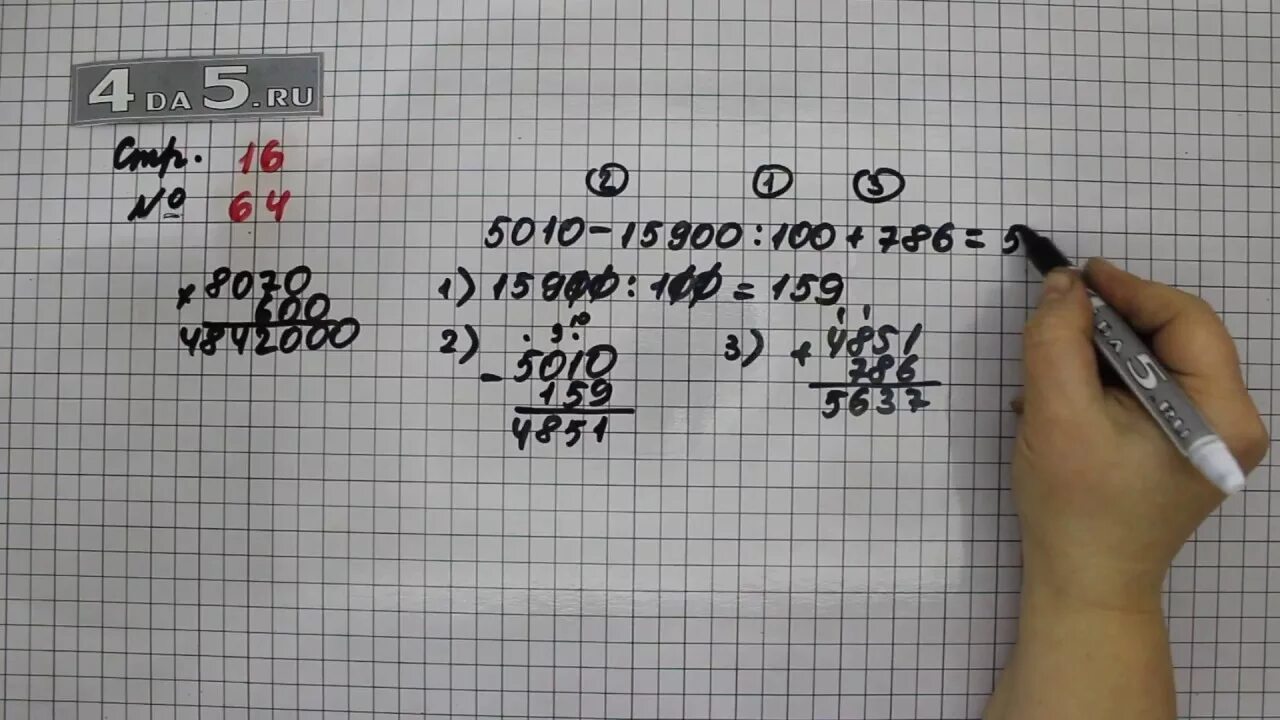 4 DA 5.RU
Стр. 16
№ 64
× 8070
600
4842000
② ① ③
5010 - 15900 : 100 + 786 = 5
1) 15900 : 100 = 159
2) 9 10
- 5010
159
4851
3) 1 1
+ 4851
786
5637
5.RU